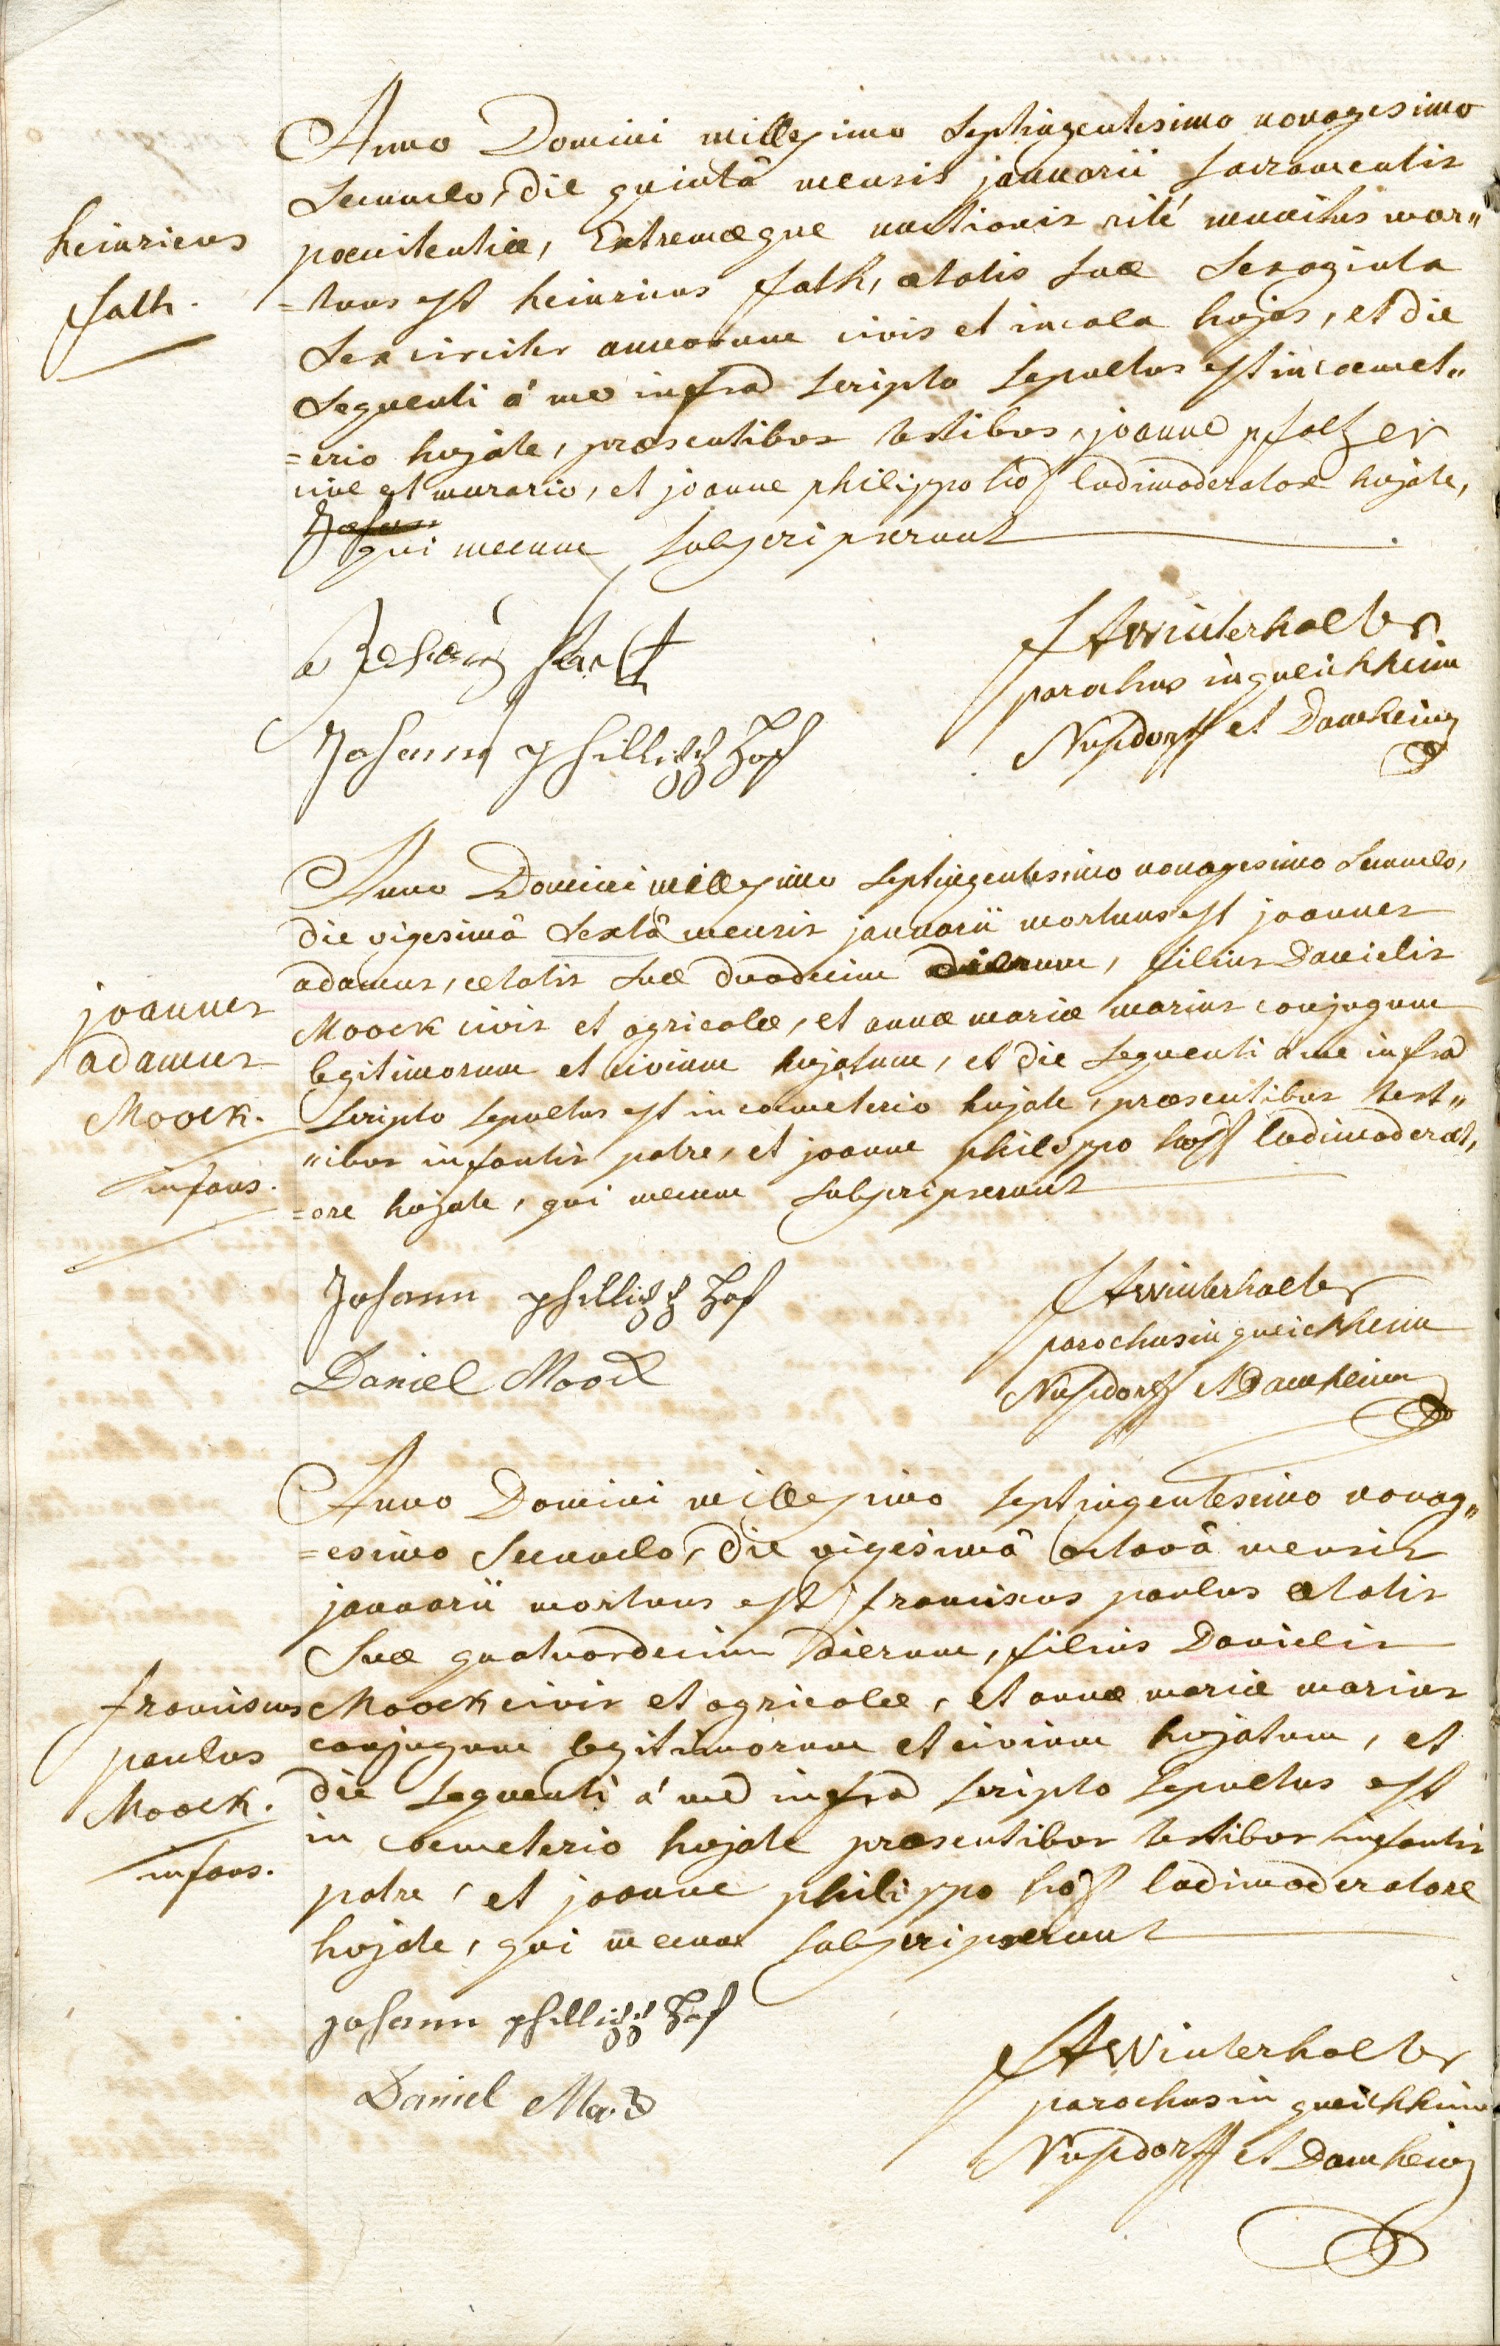 Anno Domini millesimo septingentesimo nonagesimo
secundo, die quintâ mensis januarii sacramentis
heinricus
pœnitentiæ, Extremæque unctionis rité munitus mor„
fath.
=tuus est heinricus fath, ætatis suæ sexaginta
sex circiter annorum civis et incola hujas, et die
sequenti á me infra scripto sepultus est in coemet„
=erio hujate, præsentibus testibus, joanne pfaltzer
cive et murario, et joanne philippo hoff ludimoderatore hujate,
qui mecum subscripserunt
FA Winterhalter
parochus in queichheim
Johann phillipp Hof
Nusdorff et Damheim
Anno Domini millesimo septingentesimo nonagesimo secundo,
die vigesimâ sextâ mensis januarii mortuus est joannes
adamus, ætatis suæ duodecim dierum, filius Danielis
joannes
Moock civis et agricolæ, et annæ mariæ marius conjugum
adamus
legitimorum et civium hujatum, et die sequenti á me infra
Moock.
scripto sepultus est in cœmeterio hujate, præsentibus test„
„ibus infantis patre, et joanne philippo hoff ludimoderat„
infans.
=ore hujate, qui mecum subscripserunt
Johann phillipp Hof
FA Winterhalter
parochus in queichheim
Daniel Moock
Nusdorff et Damheim
Anno Domini millesimo septingentesimo nonag„
=esimo secundo, die vigesimâ octavâ mensis
januarii mortuus est franciscus paulus ætatis
suæ quatuordecim dierum, filius Danielis
franciscus
Moock civis et agricolæ, et annæ mariæ marius
paulus
conjugum legitimorum et civium hujatum, et
Moock.
die sequenti á me infra scripto sepultus est
in coemeterio hujate præsentibus testibus infantis
infans.
patre, et joanne philippo hoff ludimoderatore
hujate, qui mecum subscripserunt
Johann phillipp Hof
FA Winterhalter
Daniel
parochus in queichheim
Nusdorff et Damheim